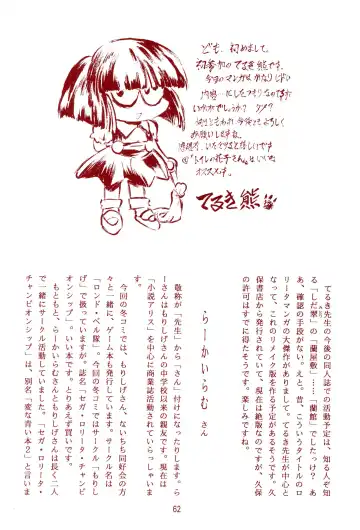 ども、初めまして
初参加のてるき熊です。
今回のマンガは、かなりしぶい
内容にしたつもりなのですが
いかがでしょうか? ダメ?
何はともあれ、今後ともよろしく
お願いしますね。
オススメ。
てるき熊
てるき先生の今後の同人誌での活動予定は、知る人ぞ知
る「しだ翠」の「蘭屋敷……「蘭館」でしたっけ?あ
あ、確認の手段がない。えと。昔、こういうタイトルのロ
リータマンガの大傑作がありまして。てるき先生が中心と
なって、これのリメイク版を作る予定があるそうです。久
保書店から発行されていて、現在は絶版なのですが、久保
の許可はすでに得たそうです。楽しみですね。
らーかいらむ さん
敬称が「先生」から「さん」付けになったりします。ら
ーさんはもりしげさんの中学校以来の親友です。現在は
「小説アリス」を中心に商業誌活動されていらっしゃいま
す。
今回の冬コミでは、もりしげさん、ないちち同好会の方
々と一緒に、ゲーム本も発行しています。サークル名は
「ロンド・ベル隊」。今回の冬コミではサークル「もりし
げ」で扱っていますが。誌名「セガ・ロリータ・チャンピ
オンシップ」。いい本です。とりあえず買いです。
もともと、らーかいらむさんともりしげさんは長く二人
で一緒にサークル活動していました。「セガ・ロリータ・
チャンピオンシップ」は、別名「変な青い本2」と言いま
62